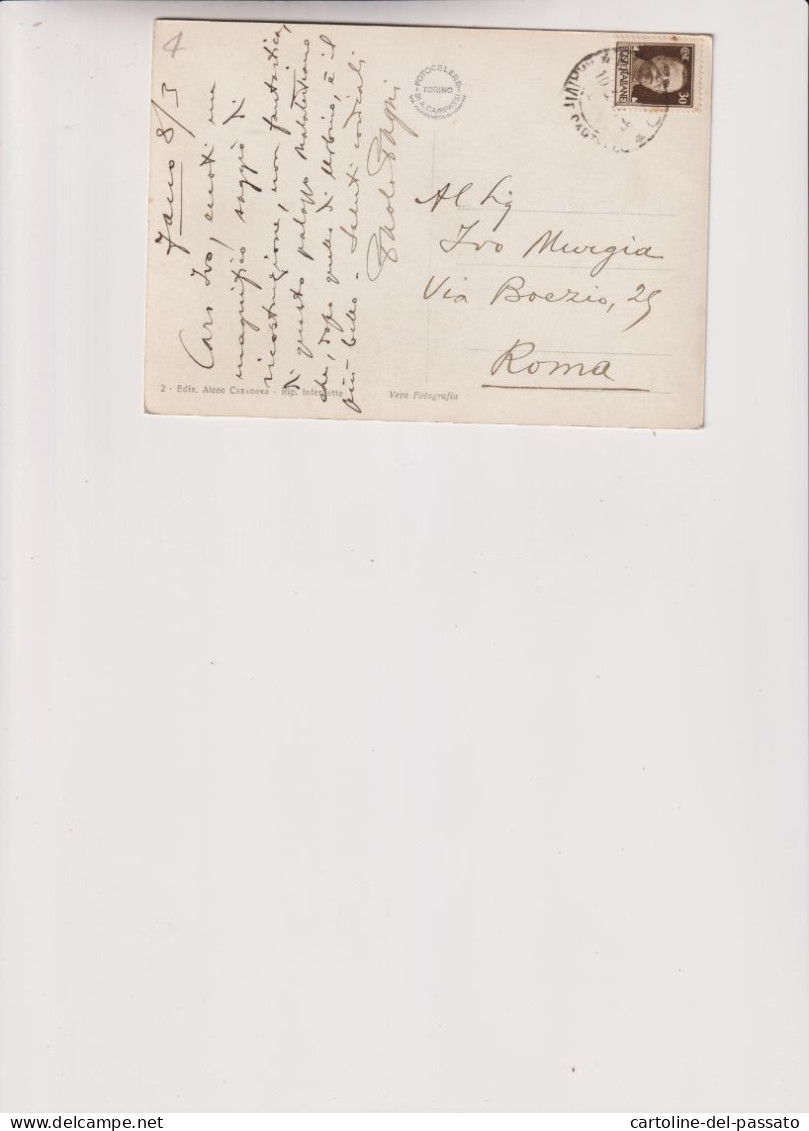 4
Fano 8/3
Caro Ivo, eccoti un
magnifico saggio di
ricostruzione, non fantastica,
di questo palazzo malatestiano
che, dopo quello di Urbino, è il
più bello - Saluti cordiali
FOTOCELERE
TORINO
DI A. CAMPASSI
30
POSTE ITALIANE
Al Sig
Ivo Murgia
Via Boezio, 25
Roma
2 - Ediz. Alceo Casanova - Rip. interdetta
Vera Fotografia
cartoline-del-passato